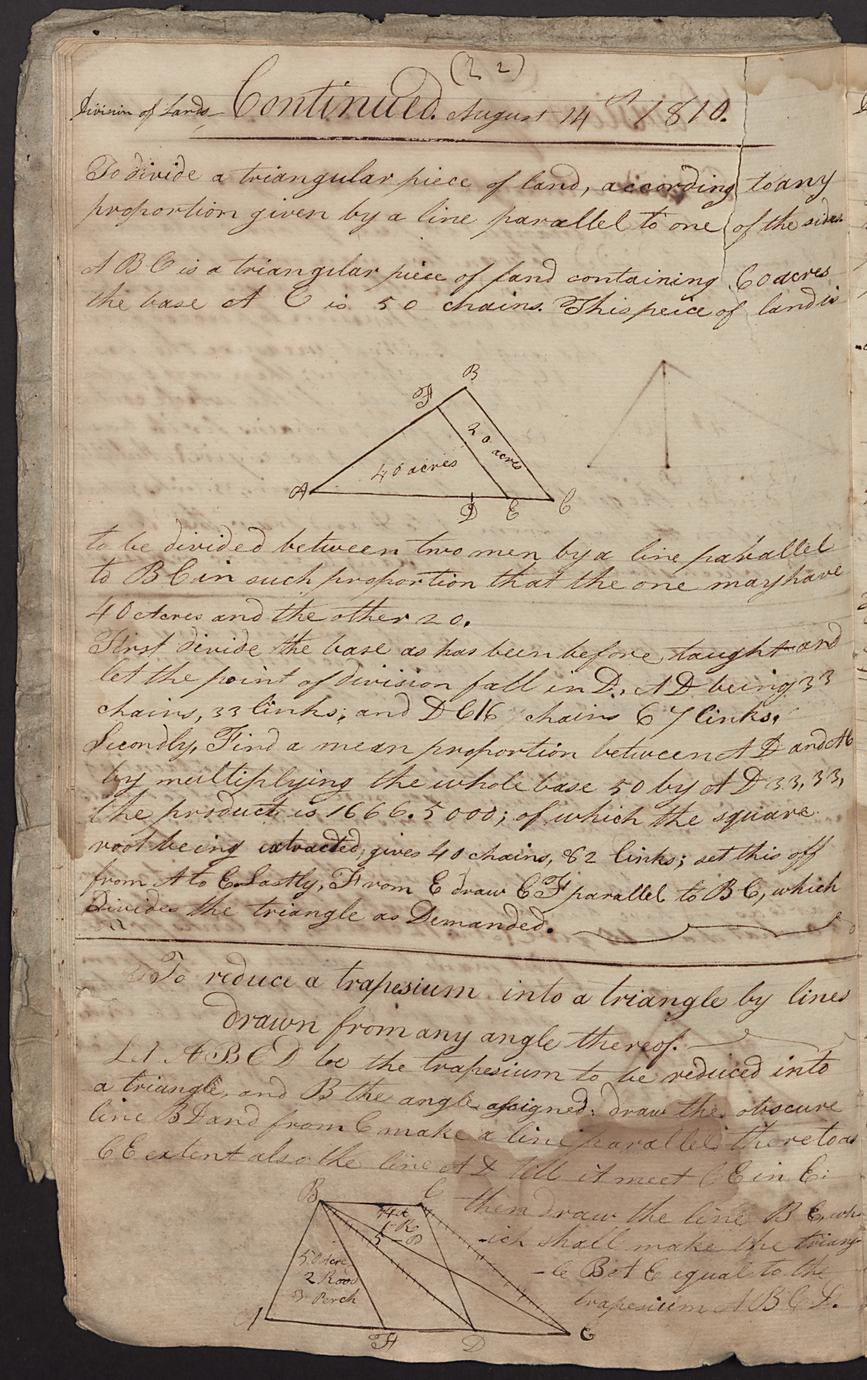 (22)
Division of Lands Continued. August 14th 1810.
To divide a triangular piece of land, according to any
proportion given by a line parallel to one of the sides
A B C is a triangular piece of land containing 60 acres
the base A C is 50 chains. This peice of land is
B
F
20 acres
40 acres
A D E C
to be divided between two men by a line parallel
to B C in such proportion that the one may have
40 Acres and the other 20.
First divide the base as has been before taught and
let the point of division fall in D, A D being 33
chains, 33 links; and D C 16 chains 67 links.
Secondly, Find a mean proportion between A D and A C
by multiplying the whole base 50 by A D 33,33,
the product is 1666.5000; of which the square
root being extracted, gives 40 chains, 82 links; set this off
from A to E. Lastly, From E draw E F parallel to B C, which
divides the triangle as Demanded.
To reduce a trapesium into a triangle by lines
drawn from any angle thereof.
Let A B C D be the trapesium to be reduced into
a triangle, and B the angle assigned: draw the obscure
line B D and from C make a line parallel thereto as
C E extent also the line A D till it meet C E in E:
B C then draw the line B E, wh-
ich shall make the triang-
le B A E equal to the
trapesium A B C D.
50 Acre
2 Rood
3 Perch
A F D E